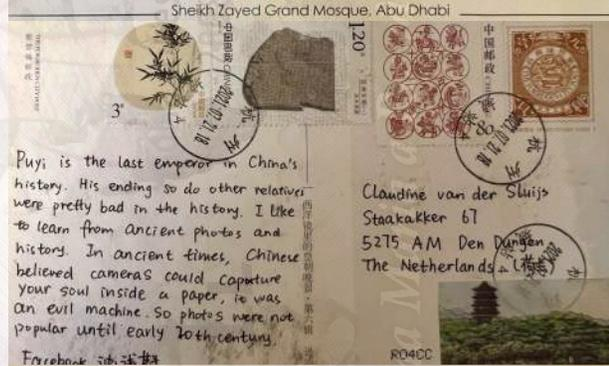 Sheikh Zayed Grand Mosque, Abu Dhabi
中国邮政
CHINA
1.20元
3元
中国邮政
2021.07.21.18
杭州
Puyi is the last emperor in China's
history. His ending so do other relatives
were pretty bad in the history. I like
to learn from ancient photos and
history. In ancient times, Chinese
believed cameras could capature
your soul inside a paper, it was
an evil machine. So photos were not
popular until early 20th century.
Facebook
西洋镜里的皇朝晚景·第六辑
Claudine van der Sluijs
Staakakker 67
5275 AM Den Dungen
The Netherlands
R04CC